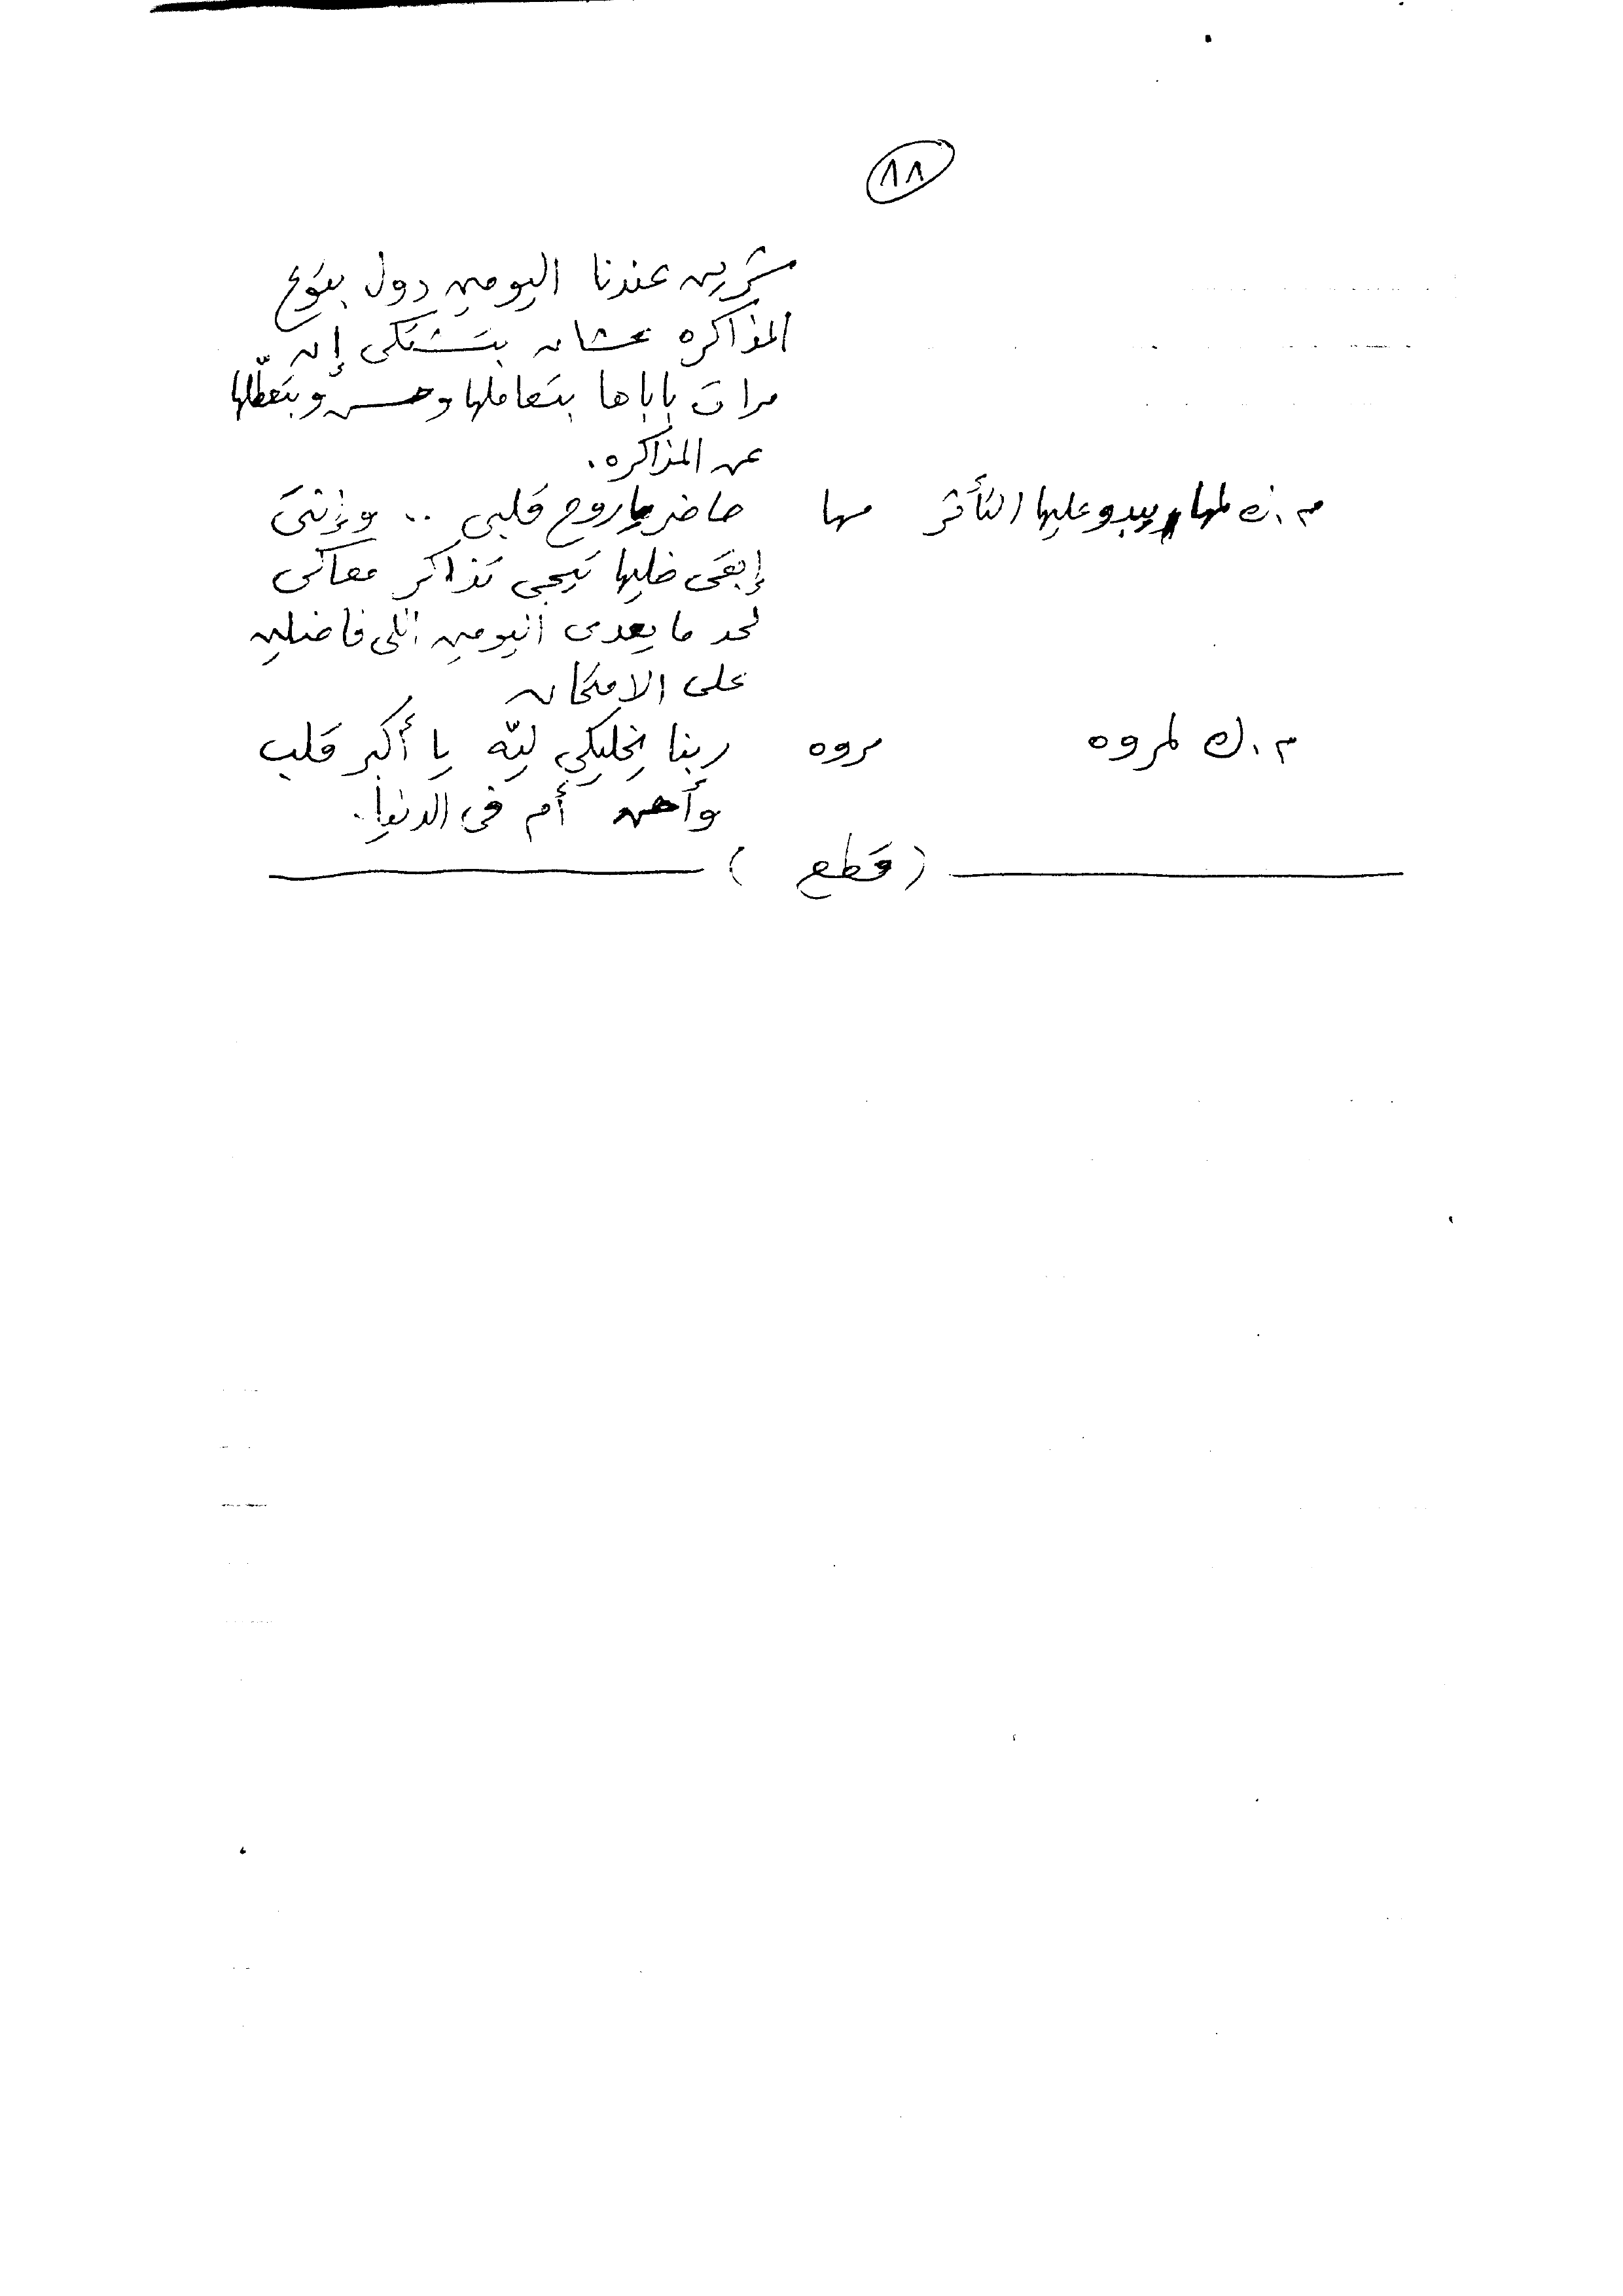 ٨٨
شرين عندنا اليومين دول بتوع
المذاكره عشان بتشتكى إن
مرات باباها بتعاملها وحش وبتعطّلها
عن المذاكره.
م.ك لمها يبدو عليها التأثر مها حاضر يا روح قلبى .. وإنتى
إبقى خليها تيجى تذاكر معاكى
لحد ما يعدى اليومين اللى فاضلين
على الامتحان
م.ك لمروه مروه ربنا يخليكى ليّه يا أكبر قلب
وأحن أم فى الدنيا.
( قطع )